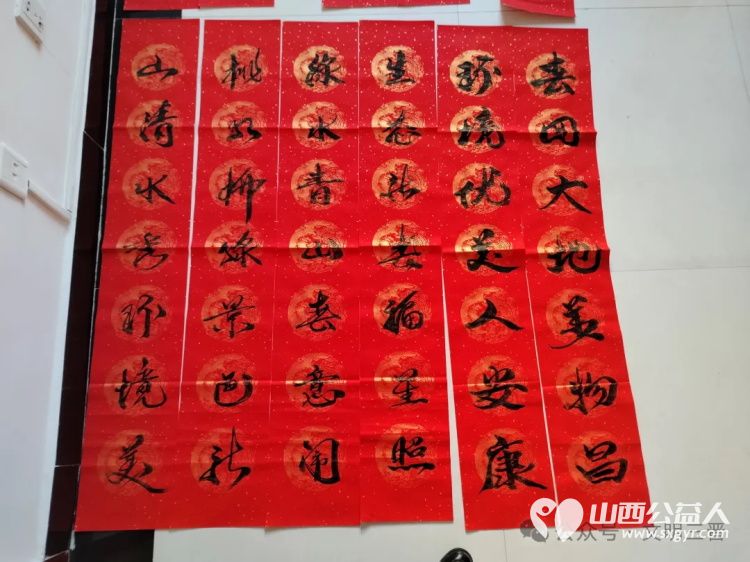 春回大地萬物昌
环境优美人安康
生春福星照
绿水青山春意闹
桃红柳绿景色新
山清水秀环境美
山西公益人
www.sxgyr.com